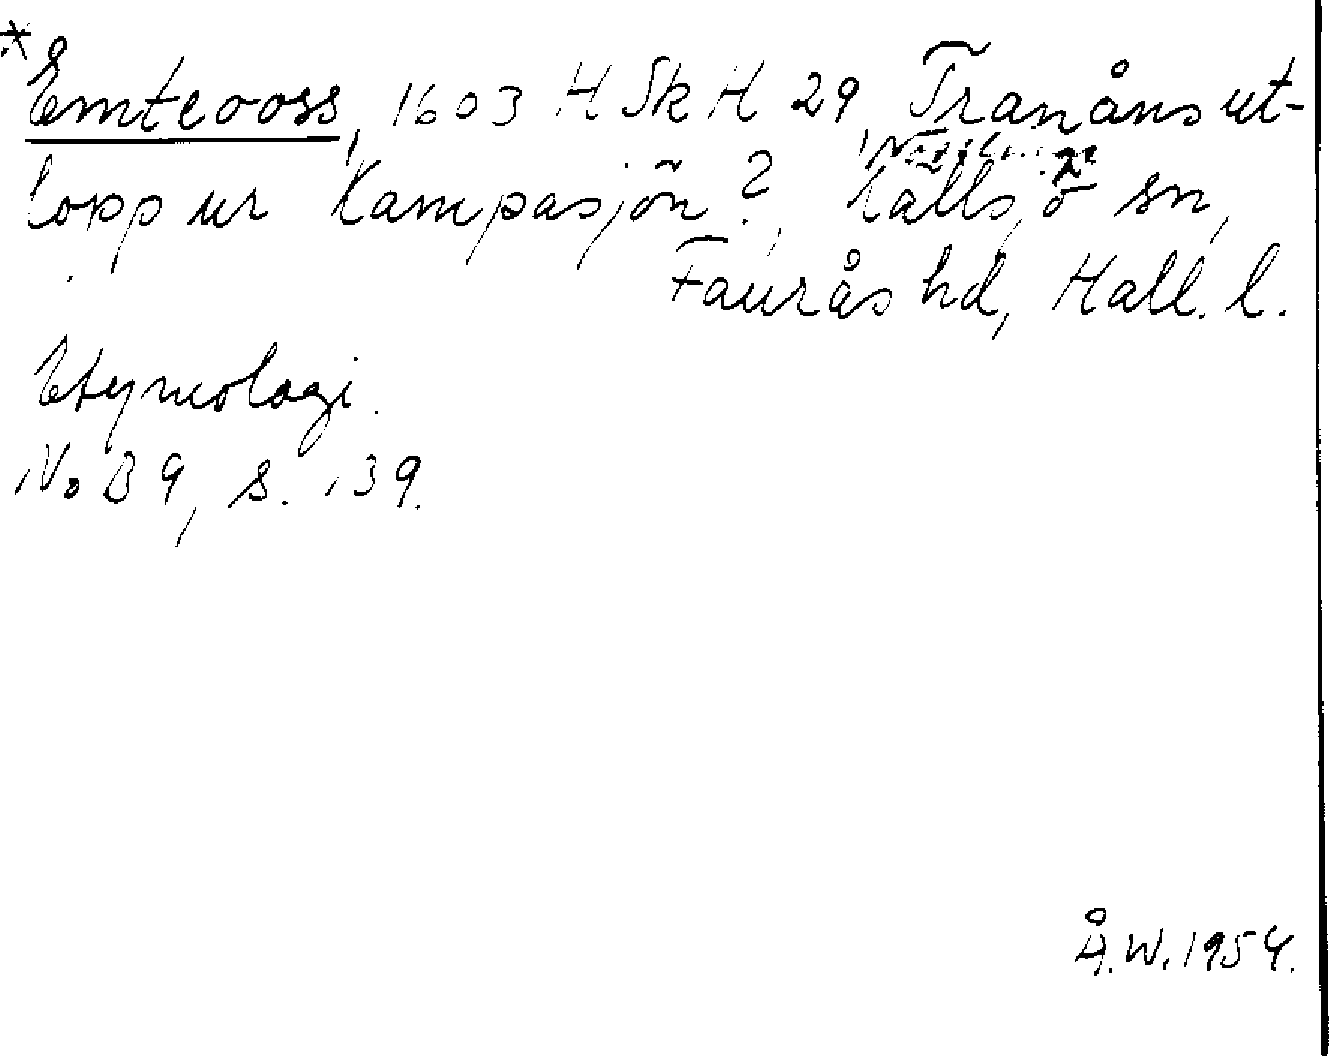 * Emteooss, 1603 HSkH 29, Tranåns ut-
lopp ur Kampasjön?, Källsjö sn,
Faurås hd, Hall. l.
Etymologi.
NoB 9, s. 139.
Å.W. 1954.